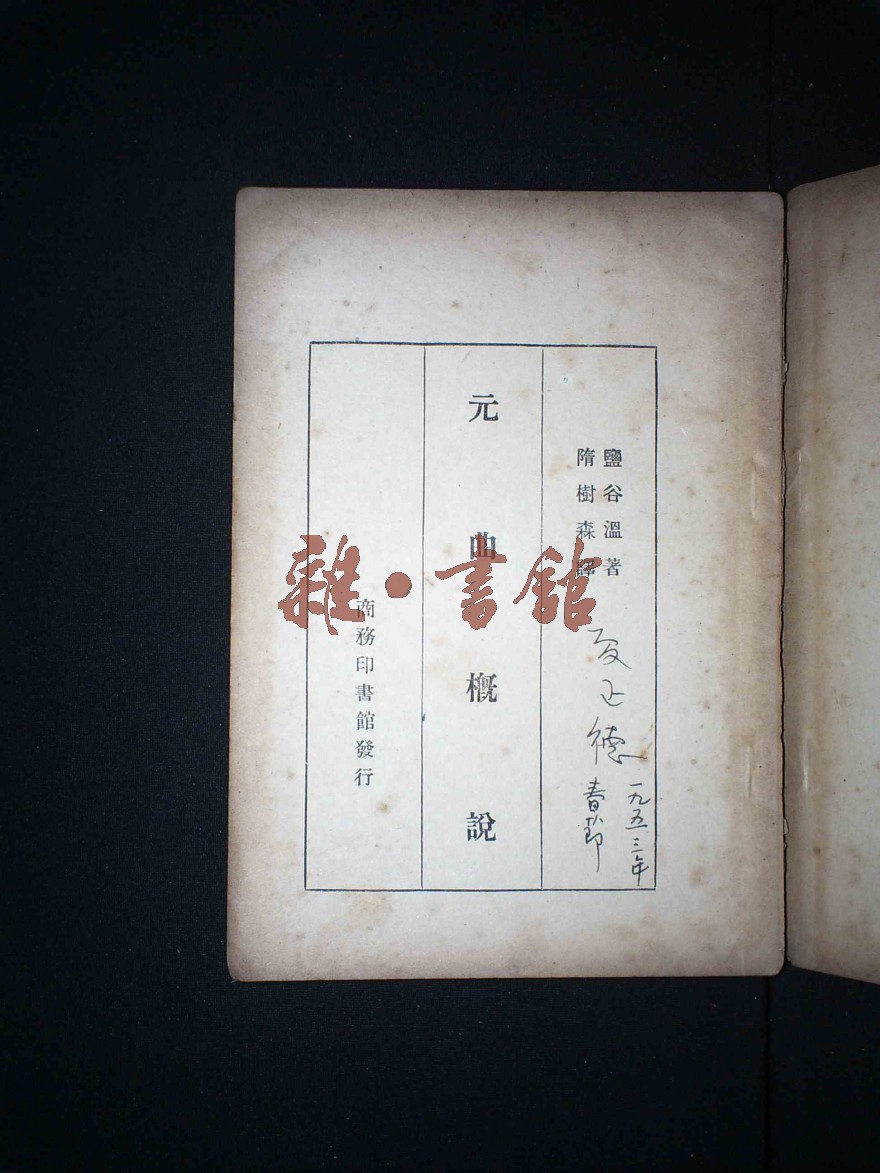 鹽谷溫著
隋樹森譯
元曲概說
商務印書館發行
夏正德
一九五三年
春節
雜·書館